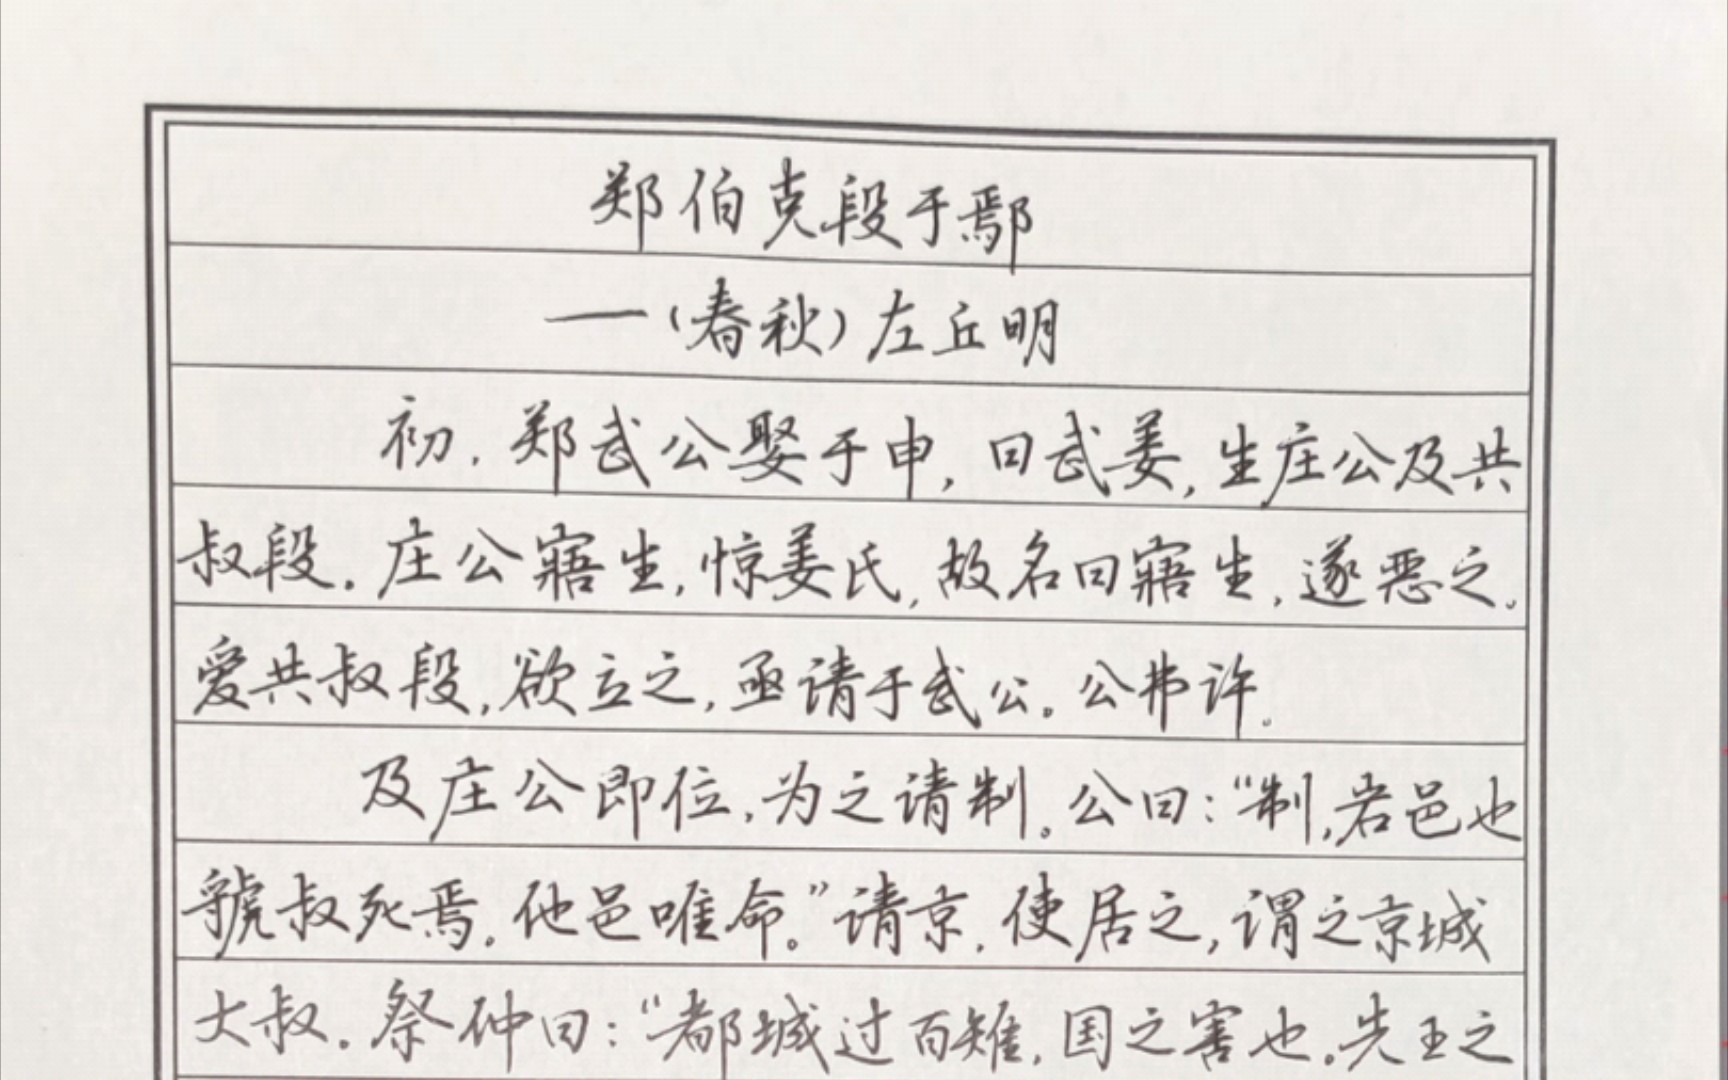 郑伯克段于鄢
——(春秋)左丘明
初,郑武公娶于申,曰武姜,生庄公及共
叔段。庄公寤生,惊姜氏,故名曰寤生,遂恶之。
爱共叔段,欲立之,亟请于武公。公弗许。
及庄公即位,为之请制。公曰:“制,岩邑也
虢叔死焉。他邑唯命。”请京,使居之,谓之京城
大叔。祭仲曰:“都城过百雉,国之害也。先王之